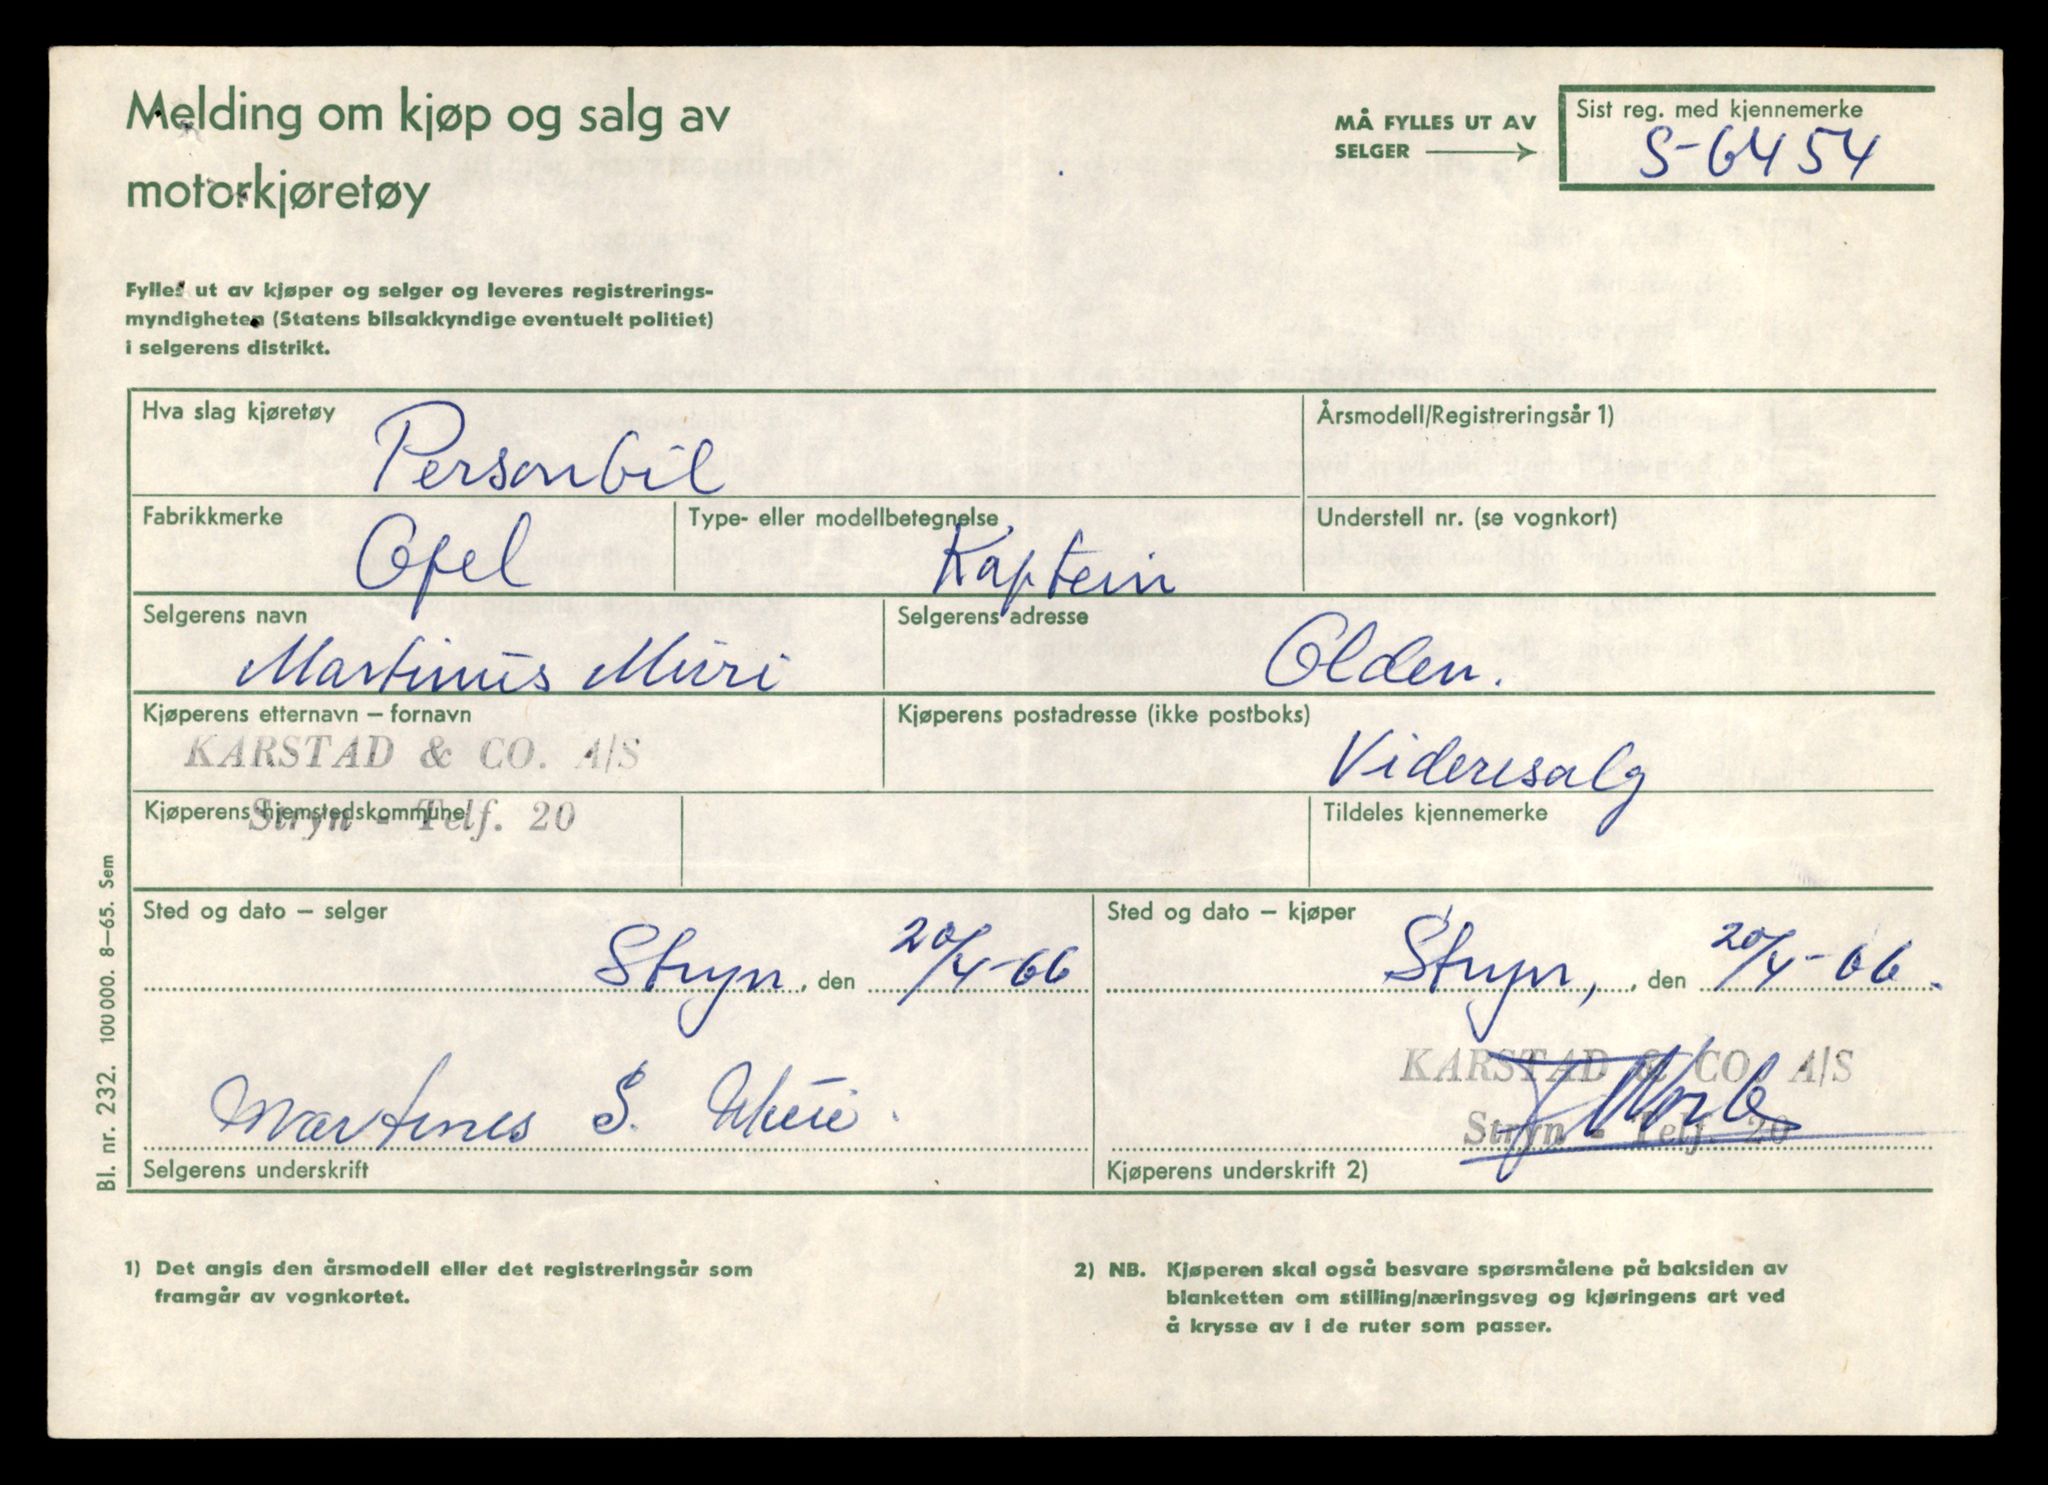 Melding om kjøp og salg av
motorkjøretøy
MÅ FYLLES UT AV
SELGER
Sist reg. med kjennemerke
S-6454
Fylles ut av kjøper og selger og leveres registrerings-
myndigheten (Statens bilsakkyndige eventuelt politiet)
i selgerens distrikt.
Hva slag kjøretøy
Personbil
Årsmodell/Registreringsår 1)
Fabrikkmerke
Opel
Type- eller modellbetegnelse
Kaptein
Understell nr. (se vognkort)
Selgerens navn
Martinus Muri
Selgerens adresse
Olden.
Kjøperens etternavn – fornavn
KARSTAD & CO. A/S
Kjøperens postadresse (ikke postboks)
Videresalg
Kjøperens hjemstedskommune
Stryn - Telf. 20
Tildeles kjennemerke
Sted og dato – selger
Stryn, den 20/4-66
Sted og dato – kjøper
Stryn, den 20/4-66.
Martinus S. Muri.
Selgerens underskrift
KARSTAD & CO. A/S
Stryn - Telf. 20
Kjøperens underskrift 2)
Bl. nr. 232. 100 000. 8–65. Sem
1) Det angis den årsmodell eller det registreringsår som
framgår av vognkortet.
2) NB. Kjøperen skal også besvare spørsmålene på baksiden av
blanketten om stilling/næringsveg og kjøringens art ved
å krysse av i de ruter som passer.